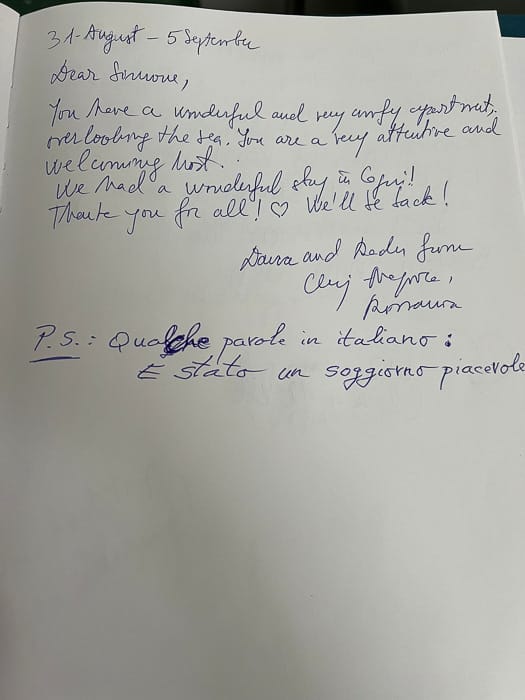 31-August - 5 September
Dear Simone,
You have a wonderful and very comfy apartment,
overlooking the sea. You are a very attentive and
welcoming host.
We had a wonderful stay in Capri!
Thank you for all! ♡ We'll be back!
and Radu from
Cluj Napoca,
Romania
P.S.: Qualche parole in italiano:
E stato un soggiorno piacevole